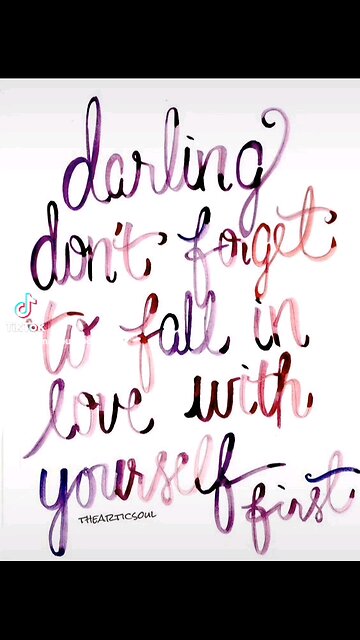 darling
don't forget
to fall in
love with
yourself first
THEARTICSOUL
TikTok